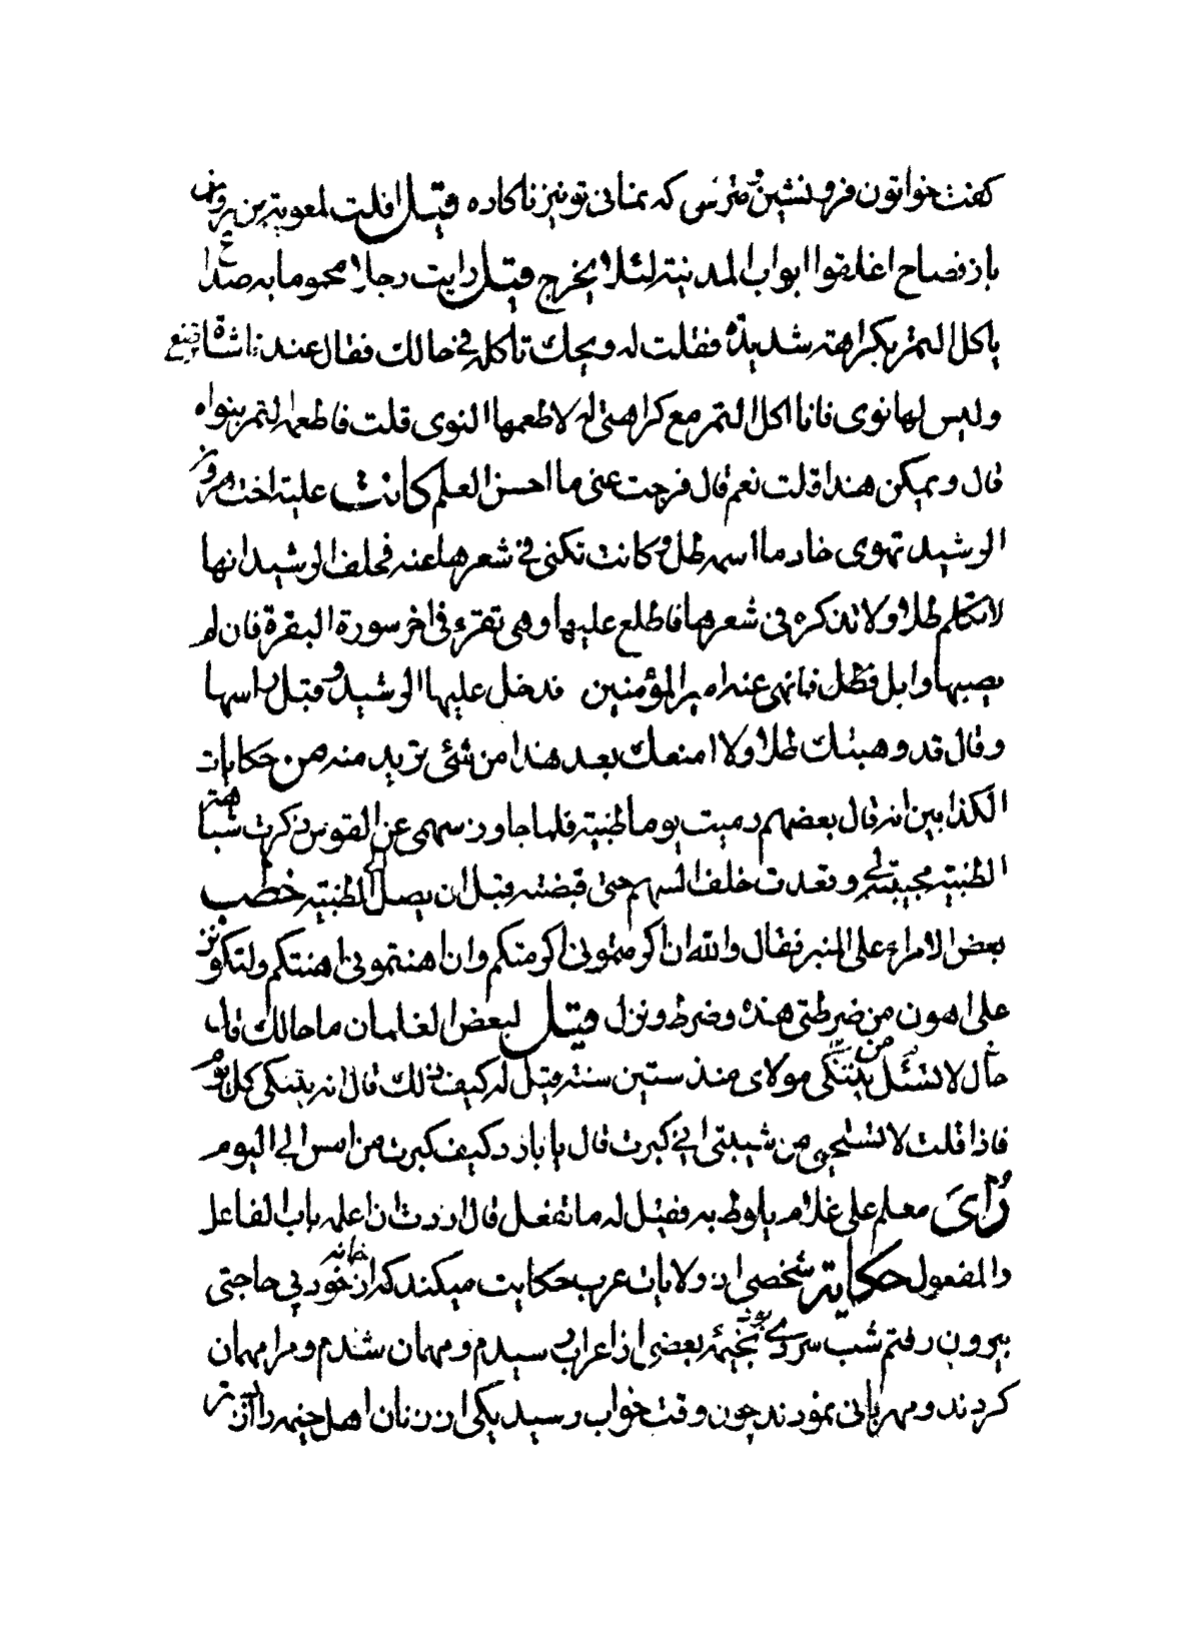 كفت خواتون فرو نشین و مترس که نمانی تو نیز ناکاده قیل افلت لمعویة بن مروان
باز فصاح اغلقوا ابواب المدینة لئلا یخرج قیل رایت رجلا محموما به صداع
یاکل التمر بکراهة شدیدة فقلت له ویحک تاکله فی حالک فقال عندنا شاة ترضع
ولیس لها نوی فانا اکل التمر مع کراهتی له لاطعمها النوی قلت فاطعمها التمر بنواه
قال ویمکن هذا قلت نعم قال فرجت عنی ما احسن العلم کانت علیة اخت هرون
الرشید تهوی خادما اسمه طل و کانت تکنی فی شعرها عنه فحلف الرشید انها
لا تکلم طلا ولا تذکره فی شعرها فاطلع علیها وهی تقرء فی اخر سورة البقرة فان لم
یصبها وابل فطل فما نهی عنه امیر المؤمنین فدخل علیها الرشید و قبل راسها
وقال قد وهبتک طلا ولا امنعک بعد هذا من شئ تریدمنه من حکایات
الکذابین انه قال بعضهم رمیت یوما ظبیة فلما جاوز سهمی عن القوس ذکرت شباهة
الظبیة بحبیبة لی وتعدت خلف السهم حتی قبضته قبل ان یصل الی الظبیة خطب
بعض الامراء علی المنبر فقال والله ان اکرمتمونی اکرمتکم وان اهنتمونی اهنتکم ولتکونن
علی اهون من ضرطتی هذه وضرط ونزل قیل لبعض الغلمان ما حالک قال
حال لا تسئل من ینیکنی مولای منذ ستین سنة قیل له کیف ذلک قال انه ینیکنی کل یوم
فاذا قلت لا تستحیی من شیبتی انی کبرت قال یا بارد کیف کبرت من امس الی الیوم
رُأیَ معلم علی غلام یلوط به فقیل له ما تفعل قال اردت ان اعلمه باب الفاعل
والمفعول حکایة شخصی از ولایات عرب حکایت میکند که از خانه خود پی حاجتی
بیرون رفتم شب سردی بود بخیمهٔ بعضی از اعراب رسیدم و مهمان شدم و مرا مهمان
کردند و مهربانی نمودند چون وقت خواب رسید یکی از زنان اهل خیمه را